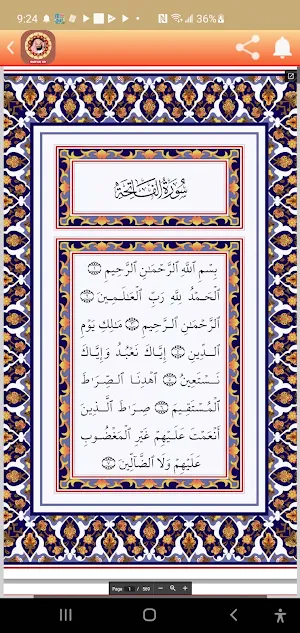 9:24
36%
سُورَةُ الفَاتِحَةِ
بِسْمِ اللَّهِ الرَّحْمَٰنِ الرَّحِيمِ ۝
الْحَمْدُ لِلَّهِ رَبِّ الْعَالَمِينَ ۝
الرَّحْمَٰنِ الرَّحِيمِ ۝ مَالِكِ يَوْمِ
الدِّينِ ۝ إِيَّاكَ نَعْبُدُ وَإِيَّاكَ
نَسْتَعِينُ ۝ اهْدِنَا الصِّرَاطَ
الْمُسْتَقِيمَ ۝ صِرَاطَ الَّذِينَ
أَنْعَمْتَ عَلَيْهِمْ غَيْرِ الْمَغْضُوبِ
عَلَيْهِمْ وَلَا الضَّالِّينَ ۝
Page 1 / 569